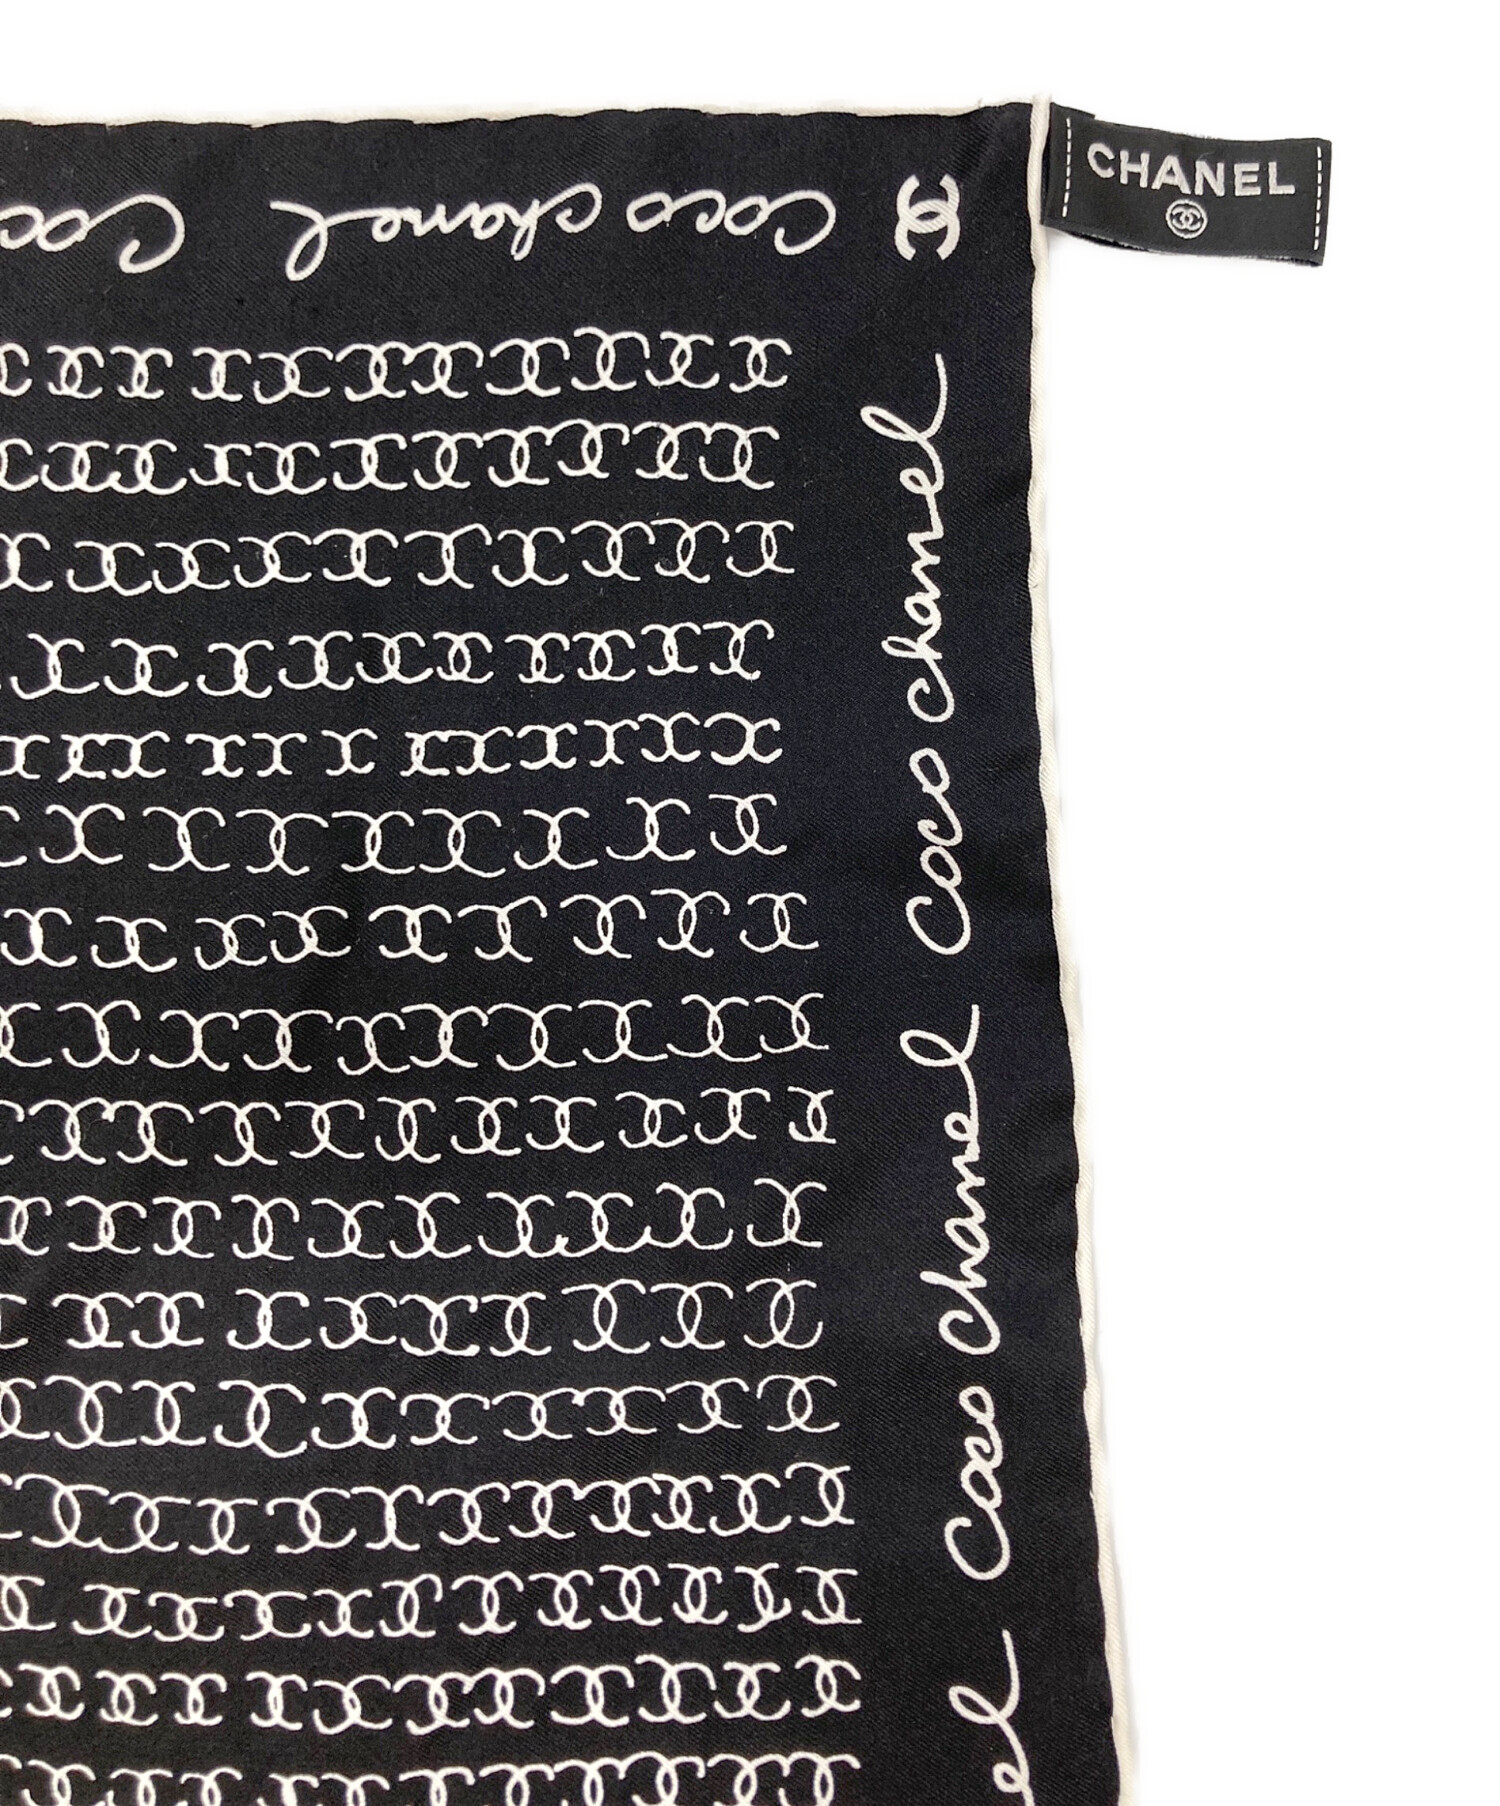 CHANEL
Coco chanel
Coco chanel
Coco chanel